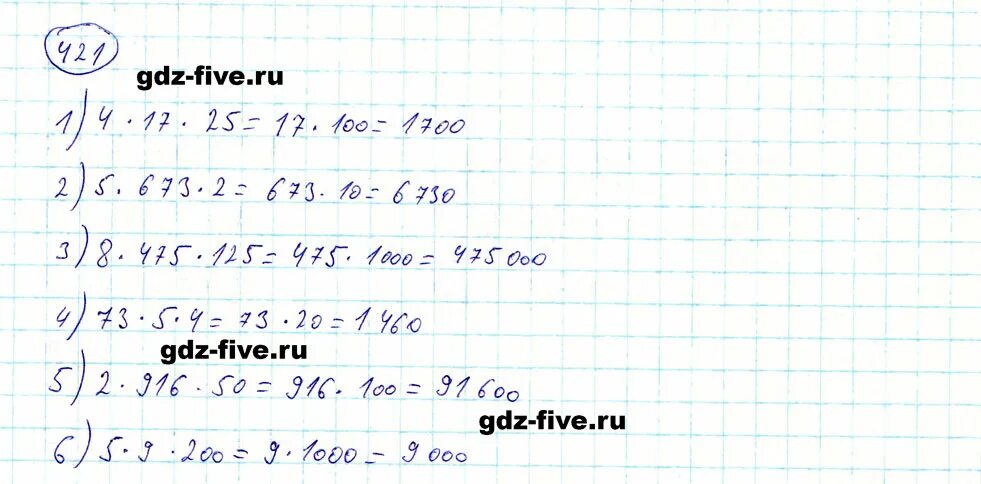 421
gdz-five.ru
1) 4 · 17 · 25 = 17 · 100 = 1700
2) 5 · 673 · 2 = 673 · 10 = 6730
3) 8 · 475 · 125 = 475 · 1000 = 475 000
4) 73 · 5 · 4 = 73 · 20 = 1 460
gdz-five.ru
5) 2 · 916 · 50 = 916 · 100 = 91 600
gdz-five.ru
6) 5 · 9 · 200 = 9 · 1000 = 9 000